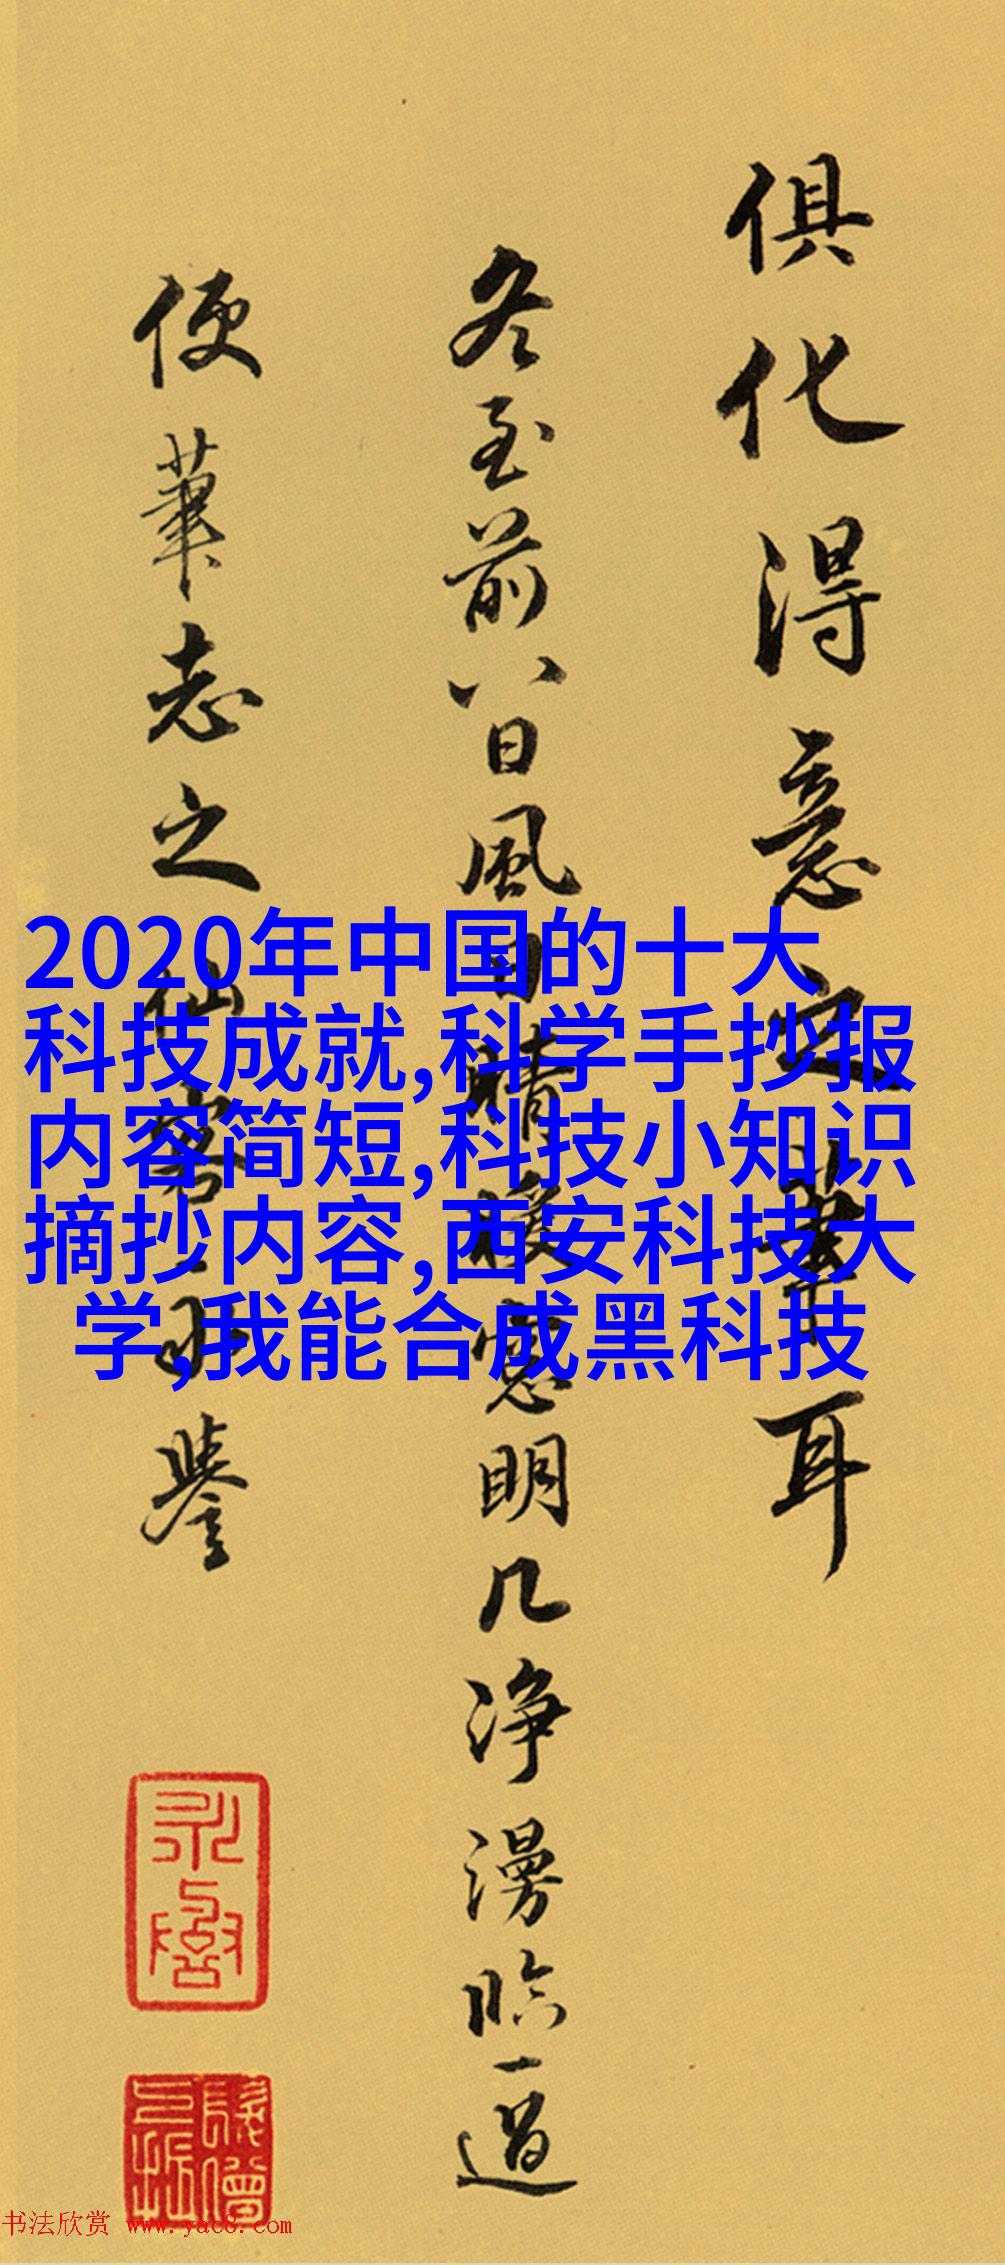 俱化得意定華耳
冬至前八日風日晴煖窓明几净漫临一過
便筆志之
2020年中国的十大
科技成就,科学手抄报
内容简短,科技小知识
摘抄内容,西安科技大
学,我能合成黑科技
书法欣赏 www.yac8.com